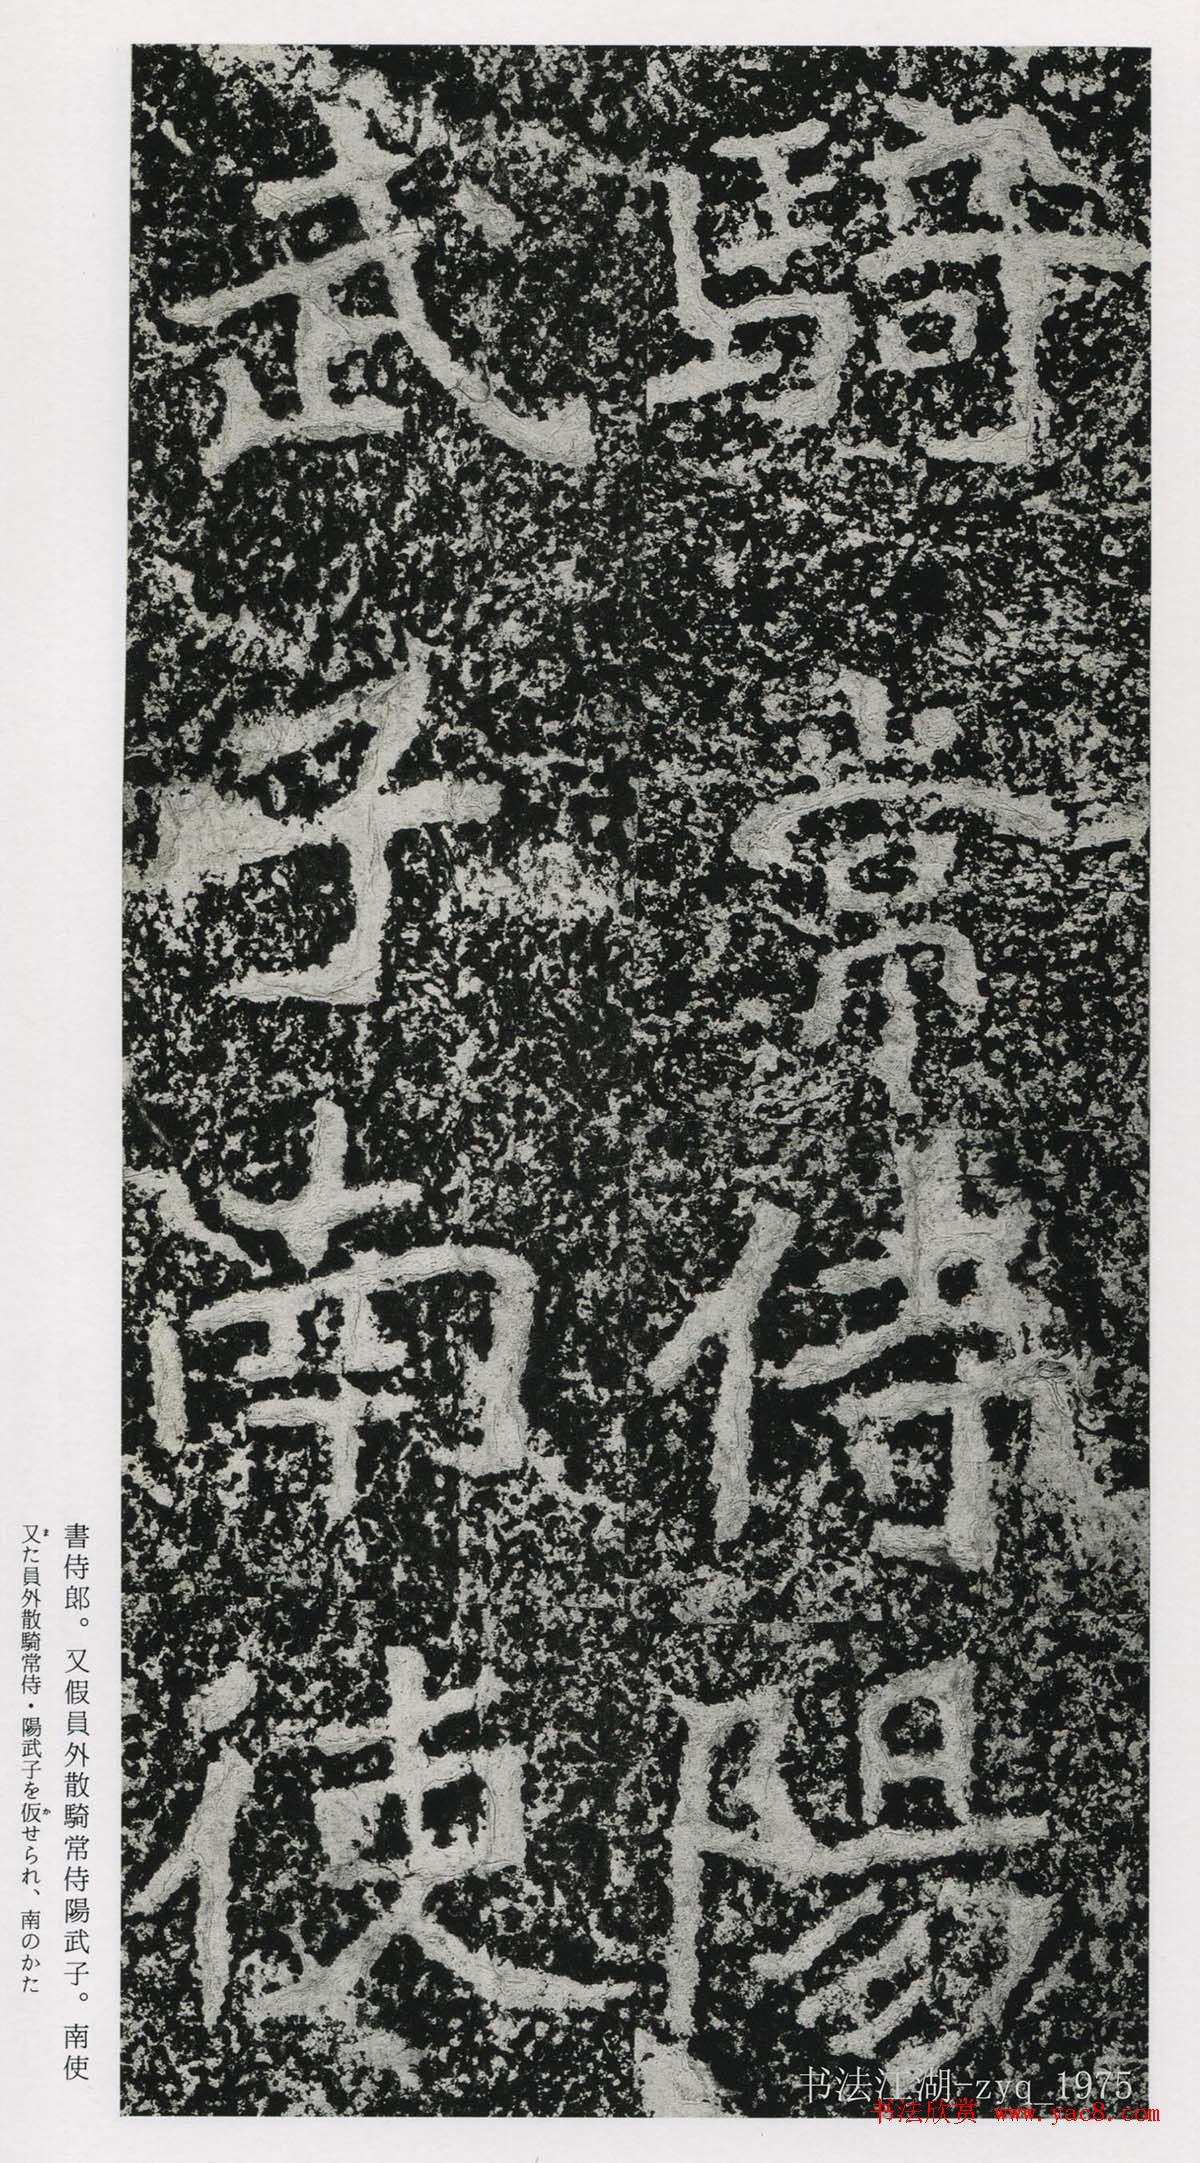 騎常侍陽
武子南使
書侍郎。又假員外散騎常侍陽武子。南使
又た員外散騎常侍・陽武子を仮せられ、南のかた
ま
か
书法江湖-zyq_1975
书法欣赏 www.yac8.com